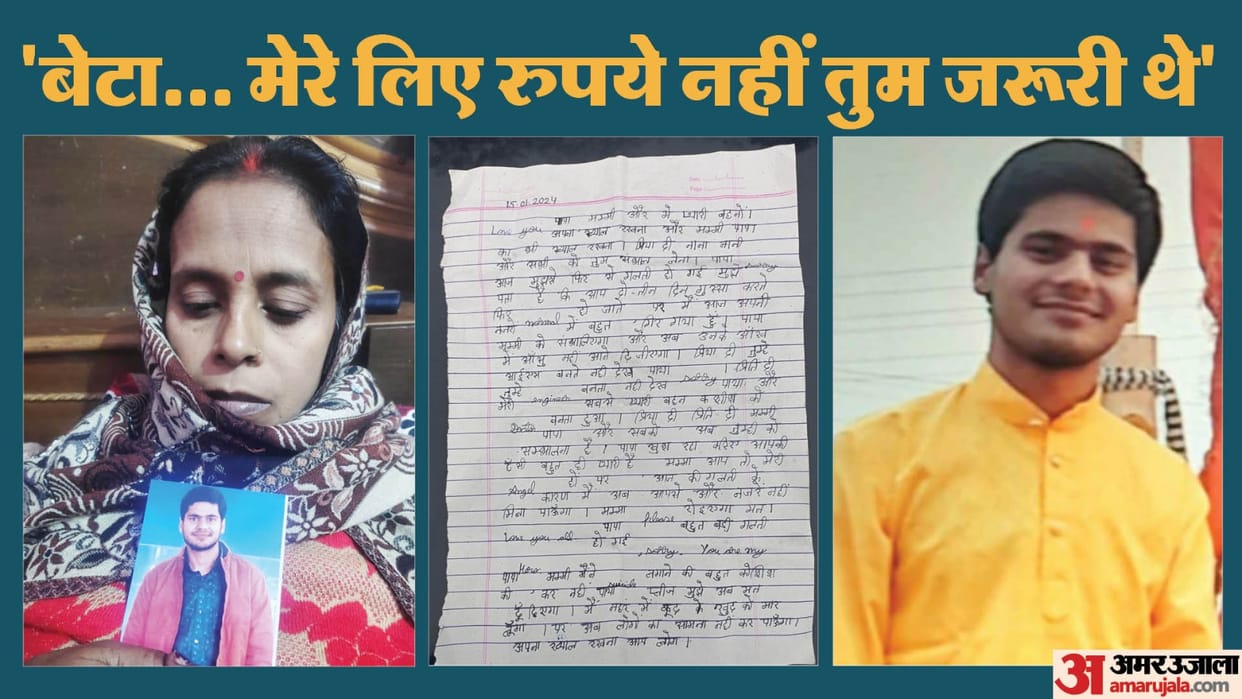 'बेटा... मेरे लिए रुपये नहीं तुम जरूरी थे'
Date
Page
15.01.2024
पापा मम्मी और मेरी प्यारी बहनों।
Love you अपना ख्याल रखना और मम्मी पापा
का भी ख्याल रखना। प्रिया दी, नाना नानी
और सभी को तुम संभाल लेना। पापा
आज मुझसे फिर से गलती हो गई मुझे
पता है कि आप दो-तीन दिन गुस्सा करते
फिर हो जाते पर मैं आज अपनी
नजरों में बहुत गिर गया हूं। पापा
normal
मम्मी को संभालिएगा और अब उनके आंख
में आंसू नहीं आने दीजिएगा। प्रिया दी तुम्हें
बनते नहीं देख पाया। प्रिति दी
तुम्हें बनता नहीं देख पाया और
मेरी engineer सबसे प्यारी बहन को
बनता हुआ। प्रिया दी प्रिति दी मम्मी
पापा और सबको अब तुम्ही को
सम्भालना है। पापा खुश रहा करिए आपकी
हंसी बहुत ही प्यारी है मम्मा आप तो मेरी
हो पर आज की गलती के
Angel
कारण मैं अब आपसे और नजरे नहीं
मिला पाऊंगा। मम्मा रोइएगा मत।
पापा please बहुत बड़ी गलती
Love you all हो गई
You are my
Hero
पापा मम्मी मैंने लगाने की बहुत कोशिश
की कर नहीं पाया प्लीज मुझे अब मत
ढूंढिएगा। मैं नहर में कूद के खुद को मार
लूंगा। पर अब लोगों का सामना नहीं कर पाऊंगा।
अपना ख्याल रखना आप लोग।
अ अमर उजाला
amarujala.com